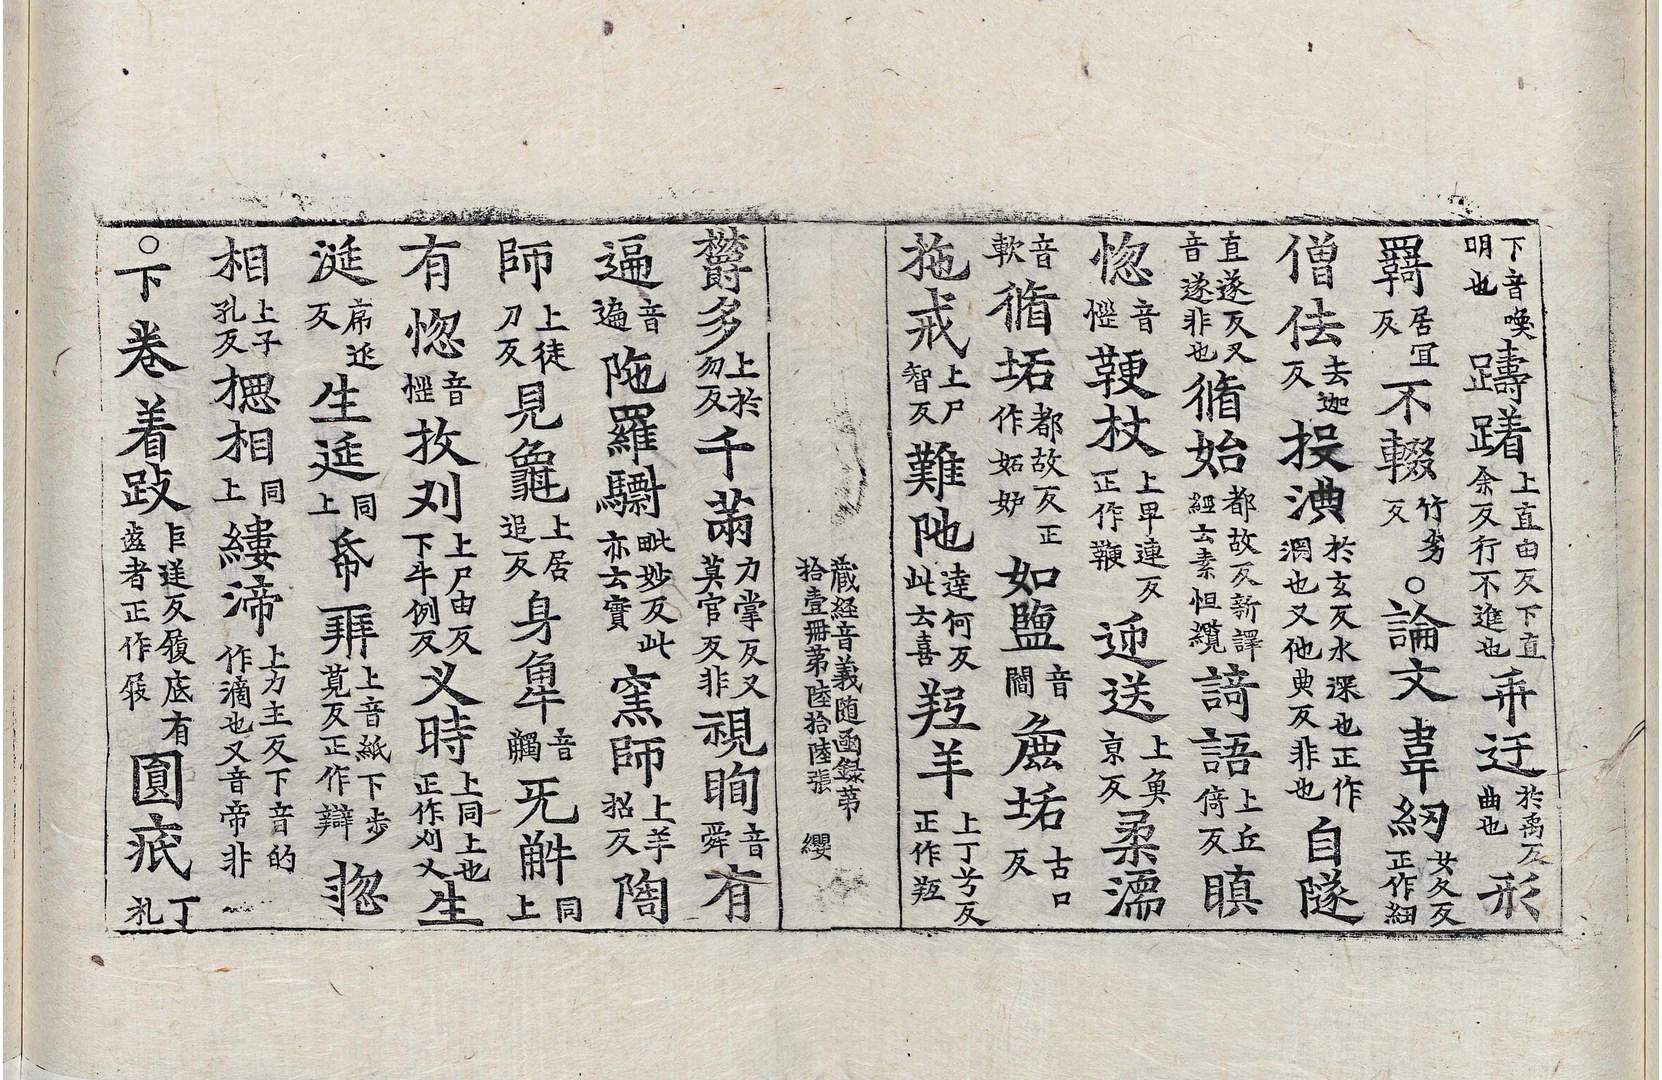 下音喚明也躊躇上直由反下直余反行不進也奔迂於禹反曲也形
羇居宜反不輟竹劣反○論文韋紉女久反正作紐
僧佉去迦反投㴊於玄反水深也正作淵也又他典反非也自隧
直遂反又音遂非也循始都故反新譯經云素怛纜䛴語上丘倚反瞋
惚音惱鞕杖上卑連反正作鞭迎送上魚京反柔濡
音軟循垢都故反正作妬妒如鹽音閻麁垢古口反
拖戒上尸智反難陁達何反此云喜羥羊上丁兮反正作羝
藏經音義随函録苐拾壹冊苐陸拾陸張 纓
欝多上於勿反千㒼力掌反又莫官反非視眴音舜有
逼音遍陁羅驃毗妙反此亦云實窯師上羊招反陶
師上徒刀反見龜上居追反身卑音觸旡觧同上
有惚音惱收刈上尸由反下牛例反义時上同上也正作刈乂生
涎席延反生涎同上帋䎃上音紙下步莧反正作辯惣
相上子孔反摠相同上縷渧上力主反下音的作滴也又音帝非
○下卷着跂巨逆反履底有齒者正作屐圓疷丁礼